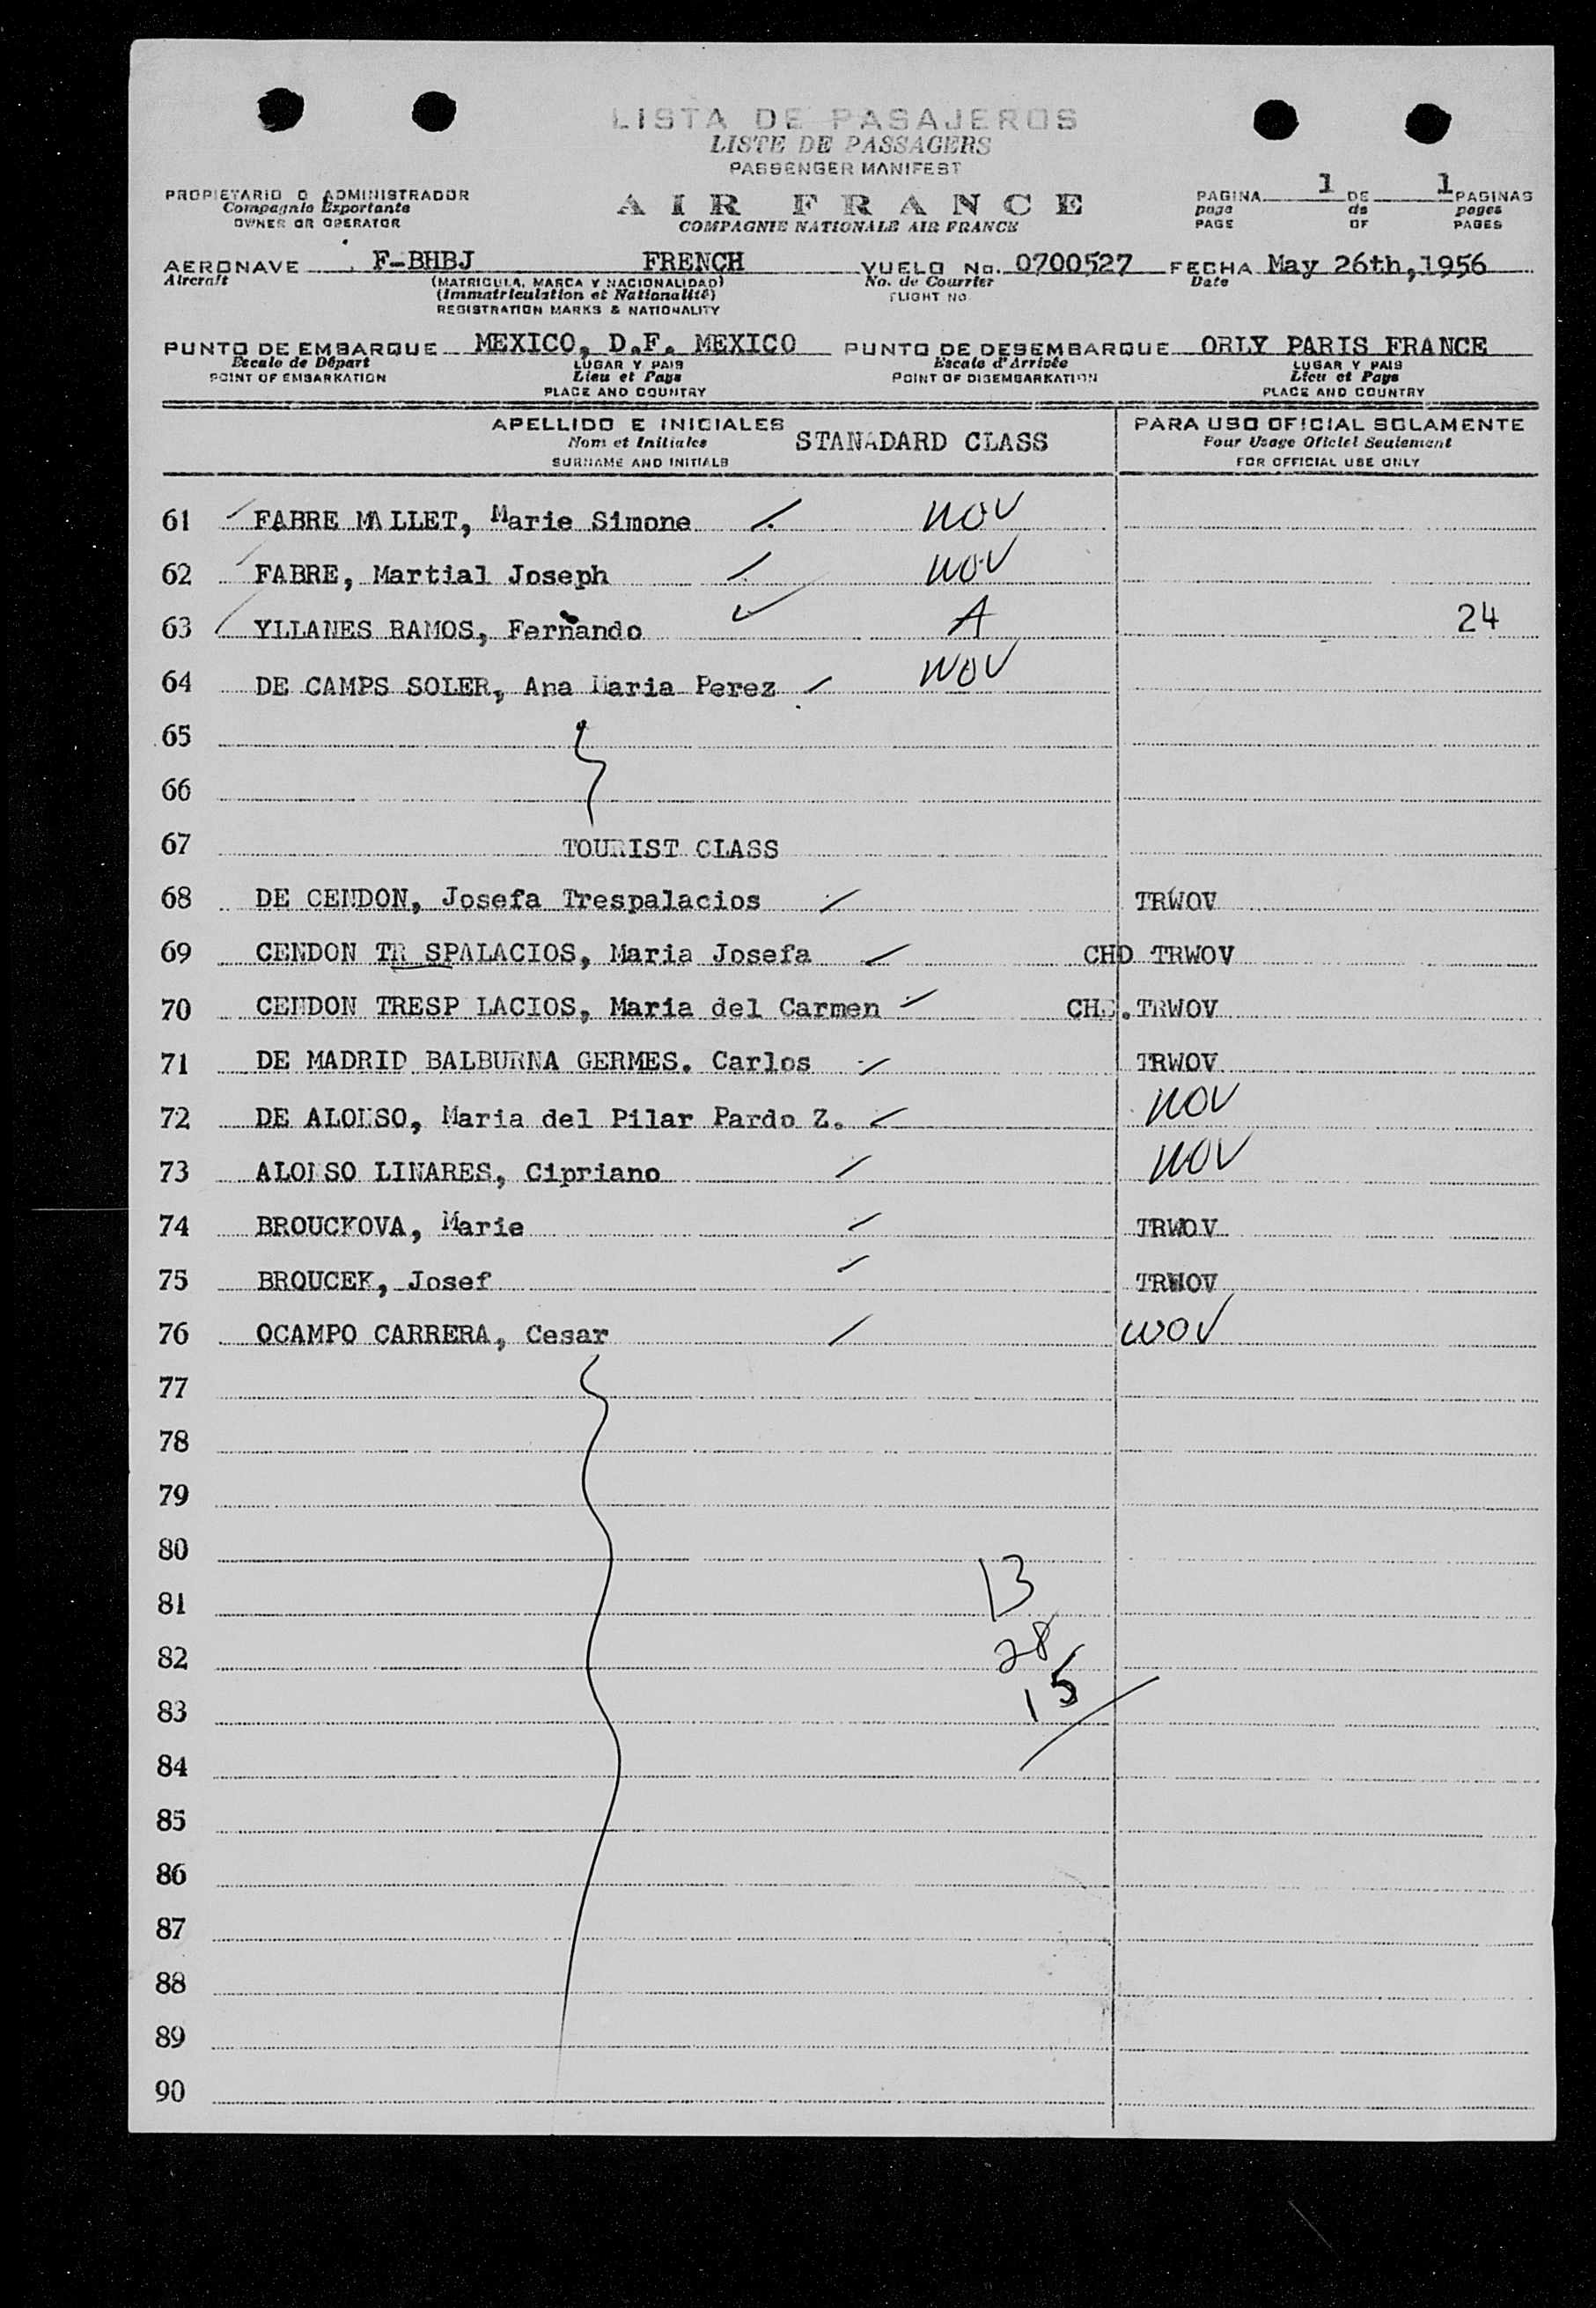 LISTA DE PASAJEROS
LISTE DE PASSAGERS
PASSENGER MANIFEST
PROPIETARIO O ADMINISTRADOR
Compagnie Exportante
OWNER OR OPERATOR
AIR FRANCE
COMPAGNIE NATIONALE AIR FRANCE
PAGINA 1 DE 1 PAGINAS
page de pages
PAGE OF PAGES
AERONAVE F-BHBJ FRENCH VUELO No. 0700527 FECHA May 26th,1956
Aircraft (MATRICULA, MARCA Y NACIONALIDAD) No. de Courrier Date
(Immatriculation et Nationalité) FLIGHT NO.
REGISTRATION MARKS & NATIONALITY
PUNTO DE EMBARQUE MEXICO, D.F. MEXICO PUNTO DE DESEMBARQUE ORLY PARIS FRANCE
Escale de Départ LUGAR Y PAIS Escale d'Arrivée LUGAR Y PAIS
POINT OF EMBARKATION Lieu et Pays POINT OF DISEMBARKATION Lieu et Pays
PLACE AND COUNTRY PLACE AND COUNTRY
APELLIDO E INICIALES STANADARD CLASS PARA USO OFICIAL SOLAMENTE
Nom et Initiales Pour Usage Oficiel Seulement
SURNAME AND INITIALS FOR OFFICIAL USE ONLY
61 FABRE MALLET, Marie Simone WOV
62 FABRE, Martial Joseph WOV
63 YLLANES RAMOS, Fernando A 24
64 DE CAMPS SOLER, Ana Maria Perez WOV
65
66
67 TOURIST CLASS
68 DE CENDON, Josefa Trespalacios TRWOV
69 CENDON TR SPALACIOS, Maria Josefa CHD TRWOV
70 CENDON TRESP LACIOS, Maria del Carmen CHD. TRWOV
71 DE MADRID BALBURNA GERMES. Carlos TRWOV
72 DE ALONSO, Maria del Pilar Pardo Z. WOV
73 ALONSO LINARES, Cipriano WOV
74 BROUCKOVA, Marie TRWOV
75 BROUCEK, Josef TRWOV
76 OCAMPO CARRERA, Cesar WOV
77
78
79
80
81 13
82 28
83 15
84
85
86
87
88
89
90